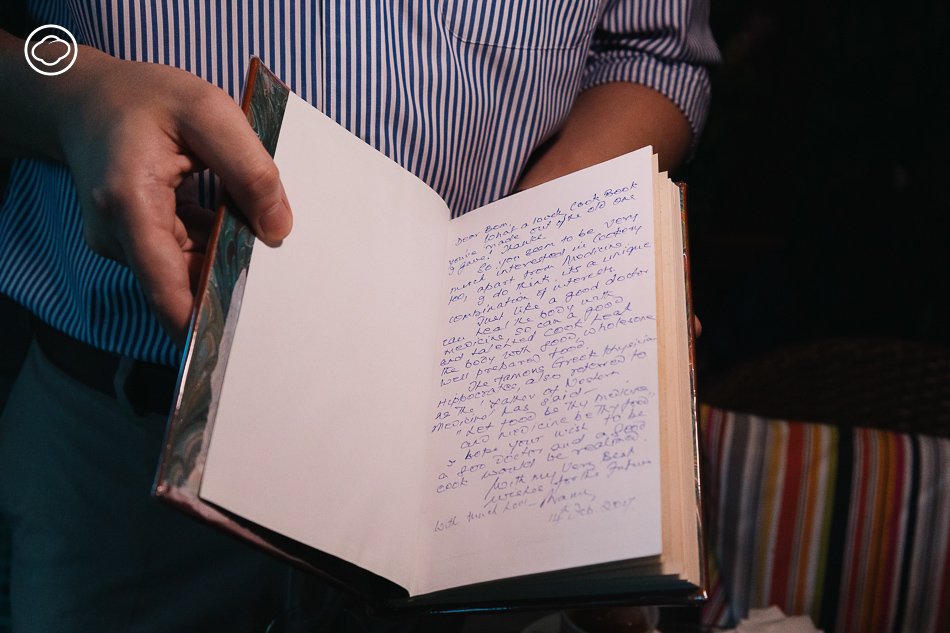 Dear Bem,
What a lovely Cook Book
you've made out of the old one
I gave! Thanks.
So you seem to be very
much interested in Cookery
too, apart from Medicine.
I do think its a unique
combination of interests.
Just like a good doctor
can heal the body with
medicine so can a good
and talented cook heal
the body with good, wholesome
well prepared food.
The famous Greek Physician
Hippocrates, also referred to
as the 'Father of Modern
Medicine', has said—
"Let food be thy medicine,
and medicine be thy food"
I hope your wish to be
a good Doctor and a good
cook would be realized.
With my very Best
wishes for the Future
With much love—
14th Feb.